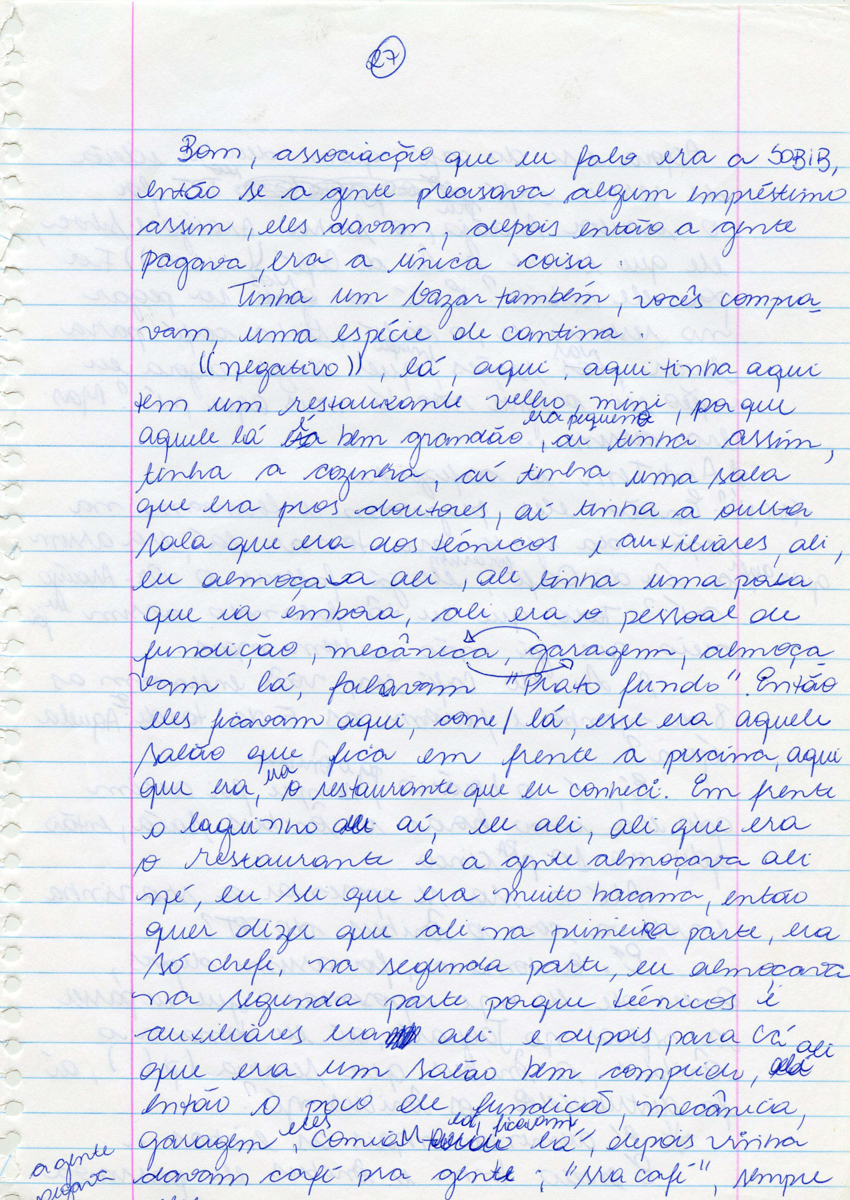 27
Bom, associação que eu falo era a SOBIB,
então se a gente precisava algum empréstimo
assim, eles davam, depois então a gente
pagava, era a única coisa.
Tinha um bazar também, vocês compra-
vam, uma espécie de cantina.
((negativo)), lá, aqui, aqui tinha aqui
tem um restaurante velho, mini, porque
era pequeno
aquele lá é bem grandão, aí tinha assim,
tinha a cozinha, aí tinha uma sala
que era pros doutores, aí tinha a outra
sala que era dos técnicos e auxiliares, ali,
eu almoçava ali, ali tinha uma
que ia embora, ali era o pessoal de
fundição, mecânica, garagem, almoça
vam lá, falavam "Prato fundo". Então
eles ficavam aqui, come/ lá, esse era aquele
salão que fica em frente a piscina, aqui
que era, era o restaurante que eu conheci. Em frente
o laguinho aí, eu ali, ali que era
o restaurante e a gente almoçava ali
né, eu sei que era muito bacana, então
quer dizer que ali na primeira parte, era
só chefe, na segunda parte, eu almoçava
na segunda parte porque técnicos e
auxiliares era ali e depois para cá ali
que era um salão bem comprido,
então o povo de fundição, mecânica,
eles lá, ficavam
garagem, comiam lá, depois vinha
a gente
davam café pra gente, "sra café", sempre
pegava